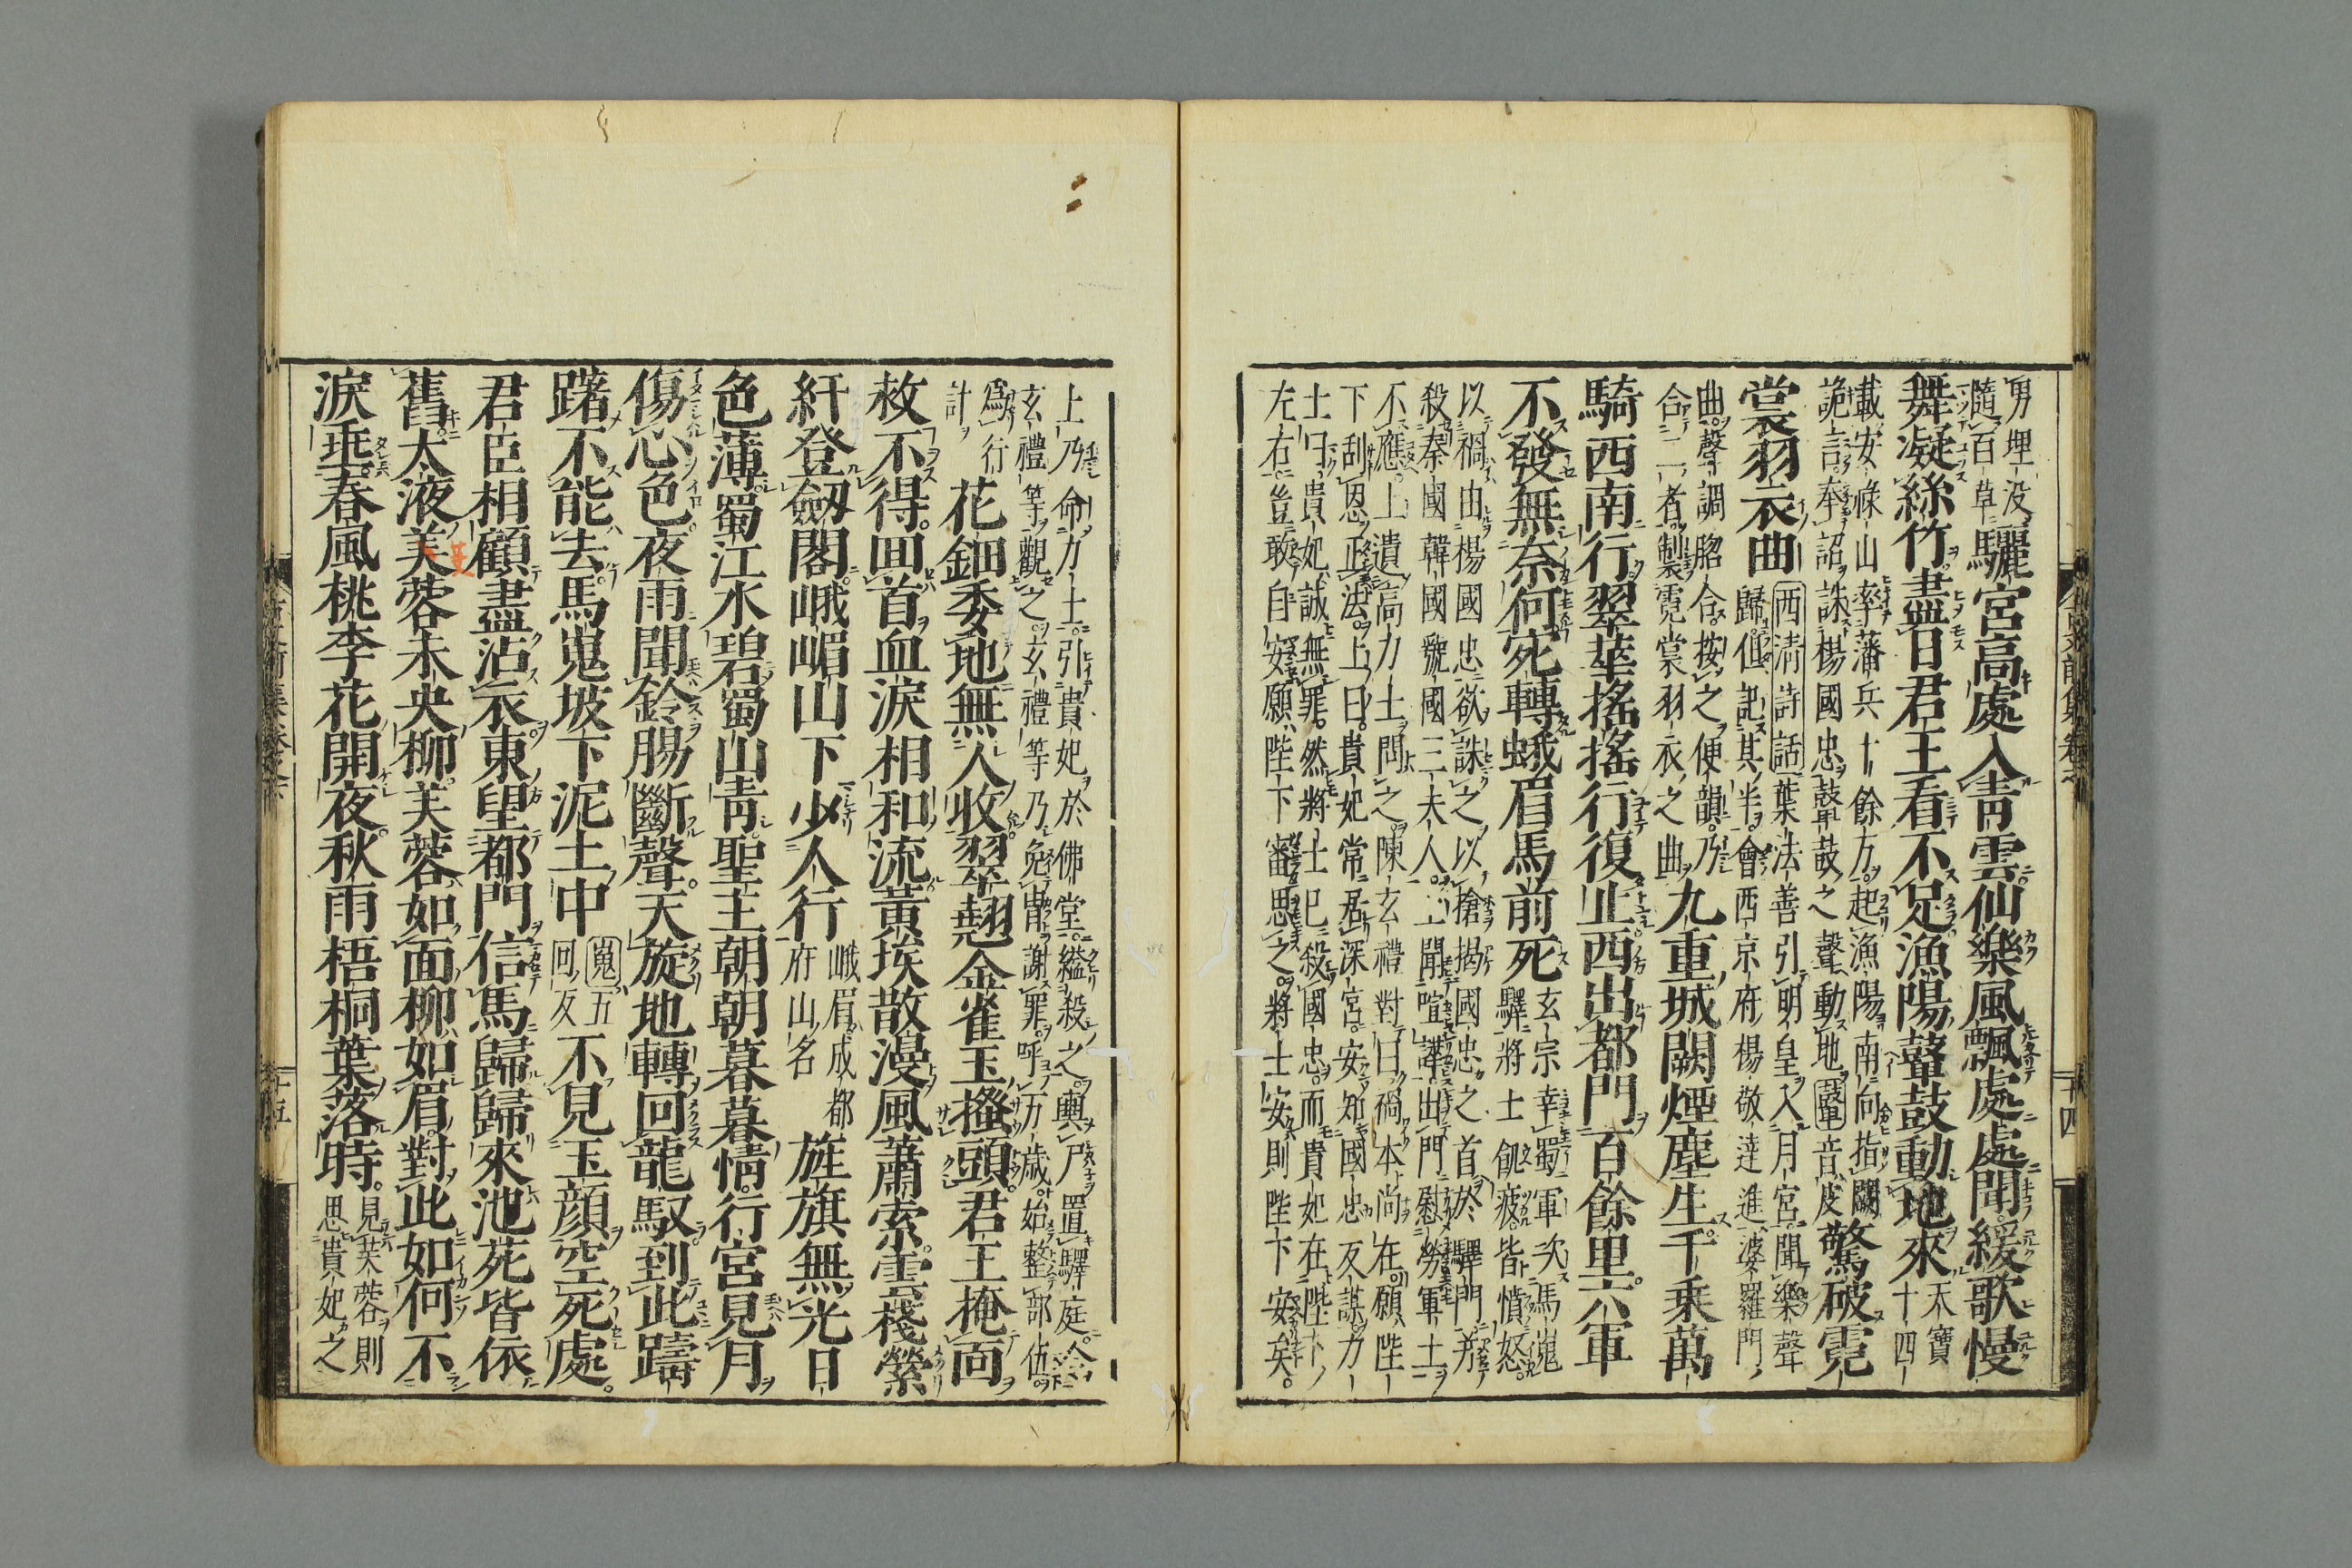 男埋没
隨百草驪宮高處入青雲仙樂風飄處處聞緩歌慢
舞凝絲竹盡日君王看不足漁陽鼙鼓動地來天寶
十四
載安祿山率藩兵十餘万起漁陽南向指闕
詭言奉詔誅楊國忠鼙鼓之聲動地鼙音皮驚破霓
裳羽衣曲西清詩話葉法善引明皇入月宮聞樂聲
歸但記其半會西京府楊敬達進婆羅門
曲聲調脗合按之便韻乃
合二者製霓裳羽衣之曲九重城闕煙塵生千乗萬
騎西南行翠華搖搖行復止西出都門百餘里六軍
不發無奈何宛轉蛾眉馬前死玄宗幸蜀軍次馬嵬
驛將士飢疲皆憤怒
以禍由楊國忠欲誅之以搶揭國忠之首於驛門并
殺秦國韓國虢國三夫人上聞喧譁出門慰勞軍士
不應上遣高力士問之陳玄禮對曰禍本尚在願陛
下刮恩正法上曰貴妃常君深宮安知國忠反謀力
士曰貴妃誠無罪然將士已殺國忠而貴妃在陛下
左右豈敢自安願陛下審思之將士安則陛下安矣
上乃命力士引貴妃於佛堂縊殺之輿尸置驛庭
玄禮等觀之玄禮等乃免冑謝罪呼万歳始整部伍
爲行
計花鈿委地無人收翠翹金雀玉搔頭君王掩面
救不得回首血淚相和流黄埃散漫風蕭索雲棧縈
紆登劔閣峨嵋山下少人行峨眉成都
府山名旌旗無光日
色薄蜀江水碧蜀山青聖主朝朝暮暮情行宮見月
傷心色夜雨聞鈴腸斷聲天旋地轉回龍馭到此躊
躇不能去馬嵬坡下泥土中嵬五
回反不見玉顔空死處
君臣相顧盡沾衣東望都門信馬歸歸來池苑皆依
舊太液美蓉未央柳芙蓉如面柳如眉對此如何不
淚垂春風桃李花開夜秋雨梧桐葉落時見芙蓉則
思貴妃之
十四
十五